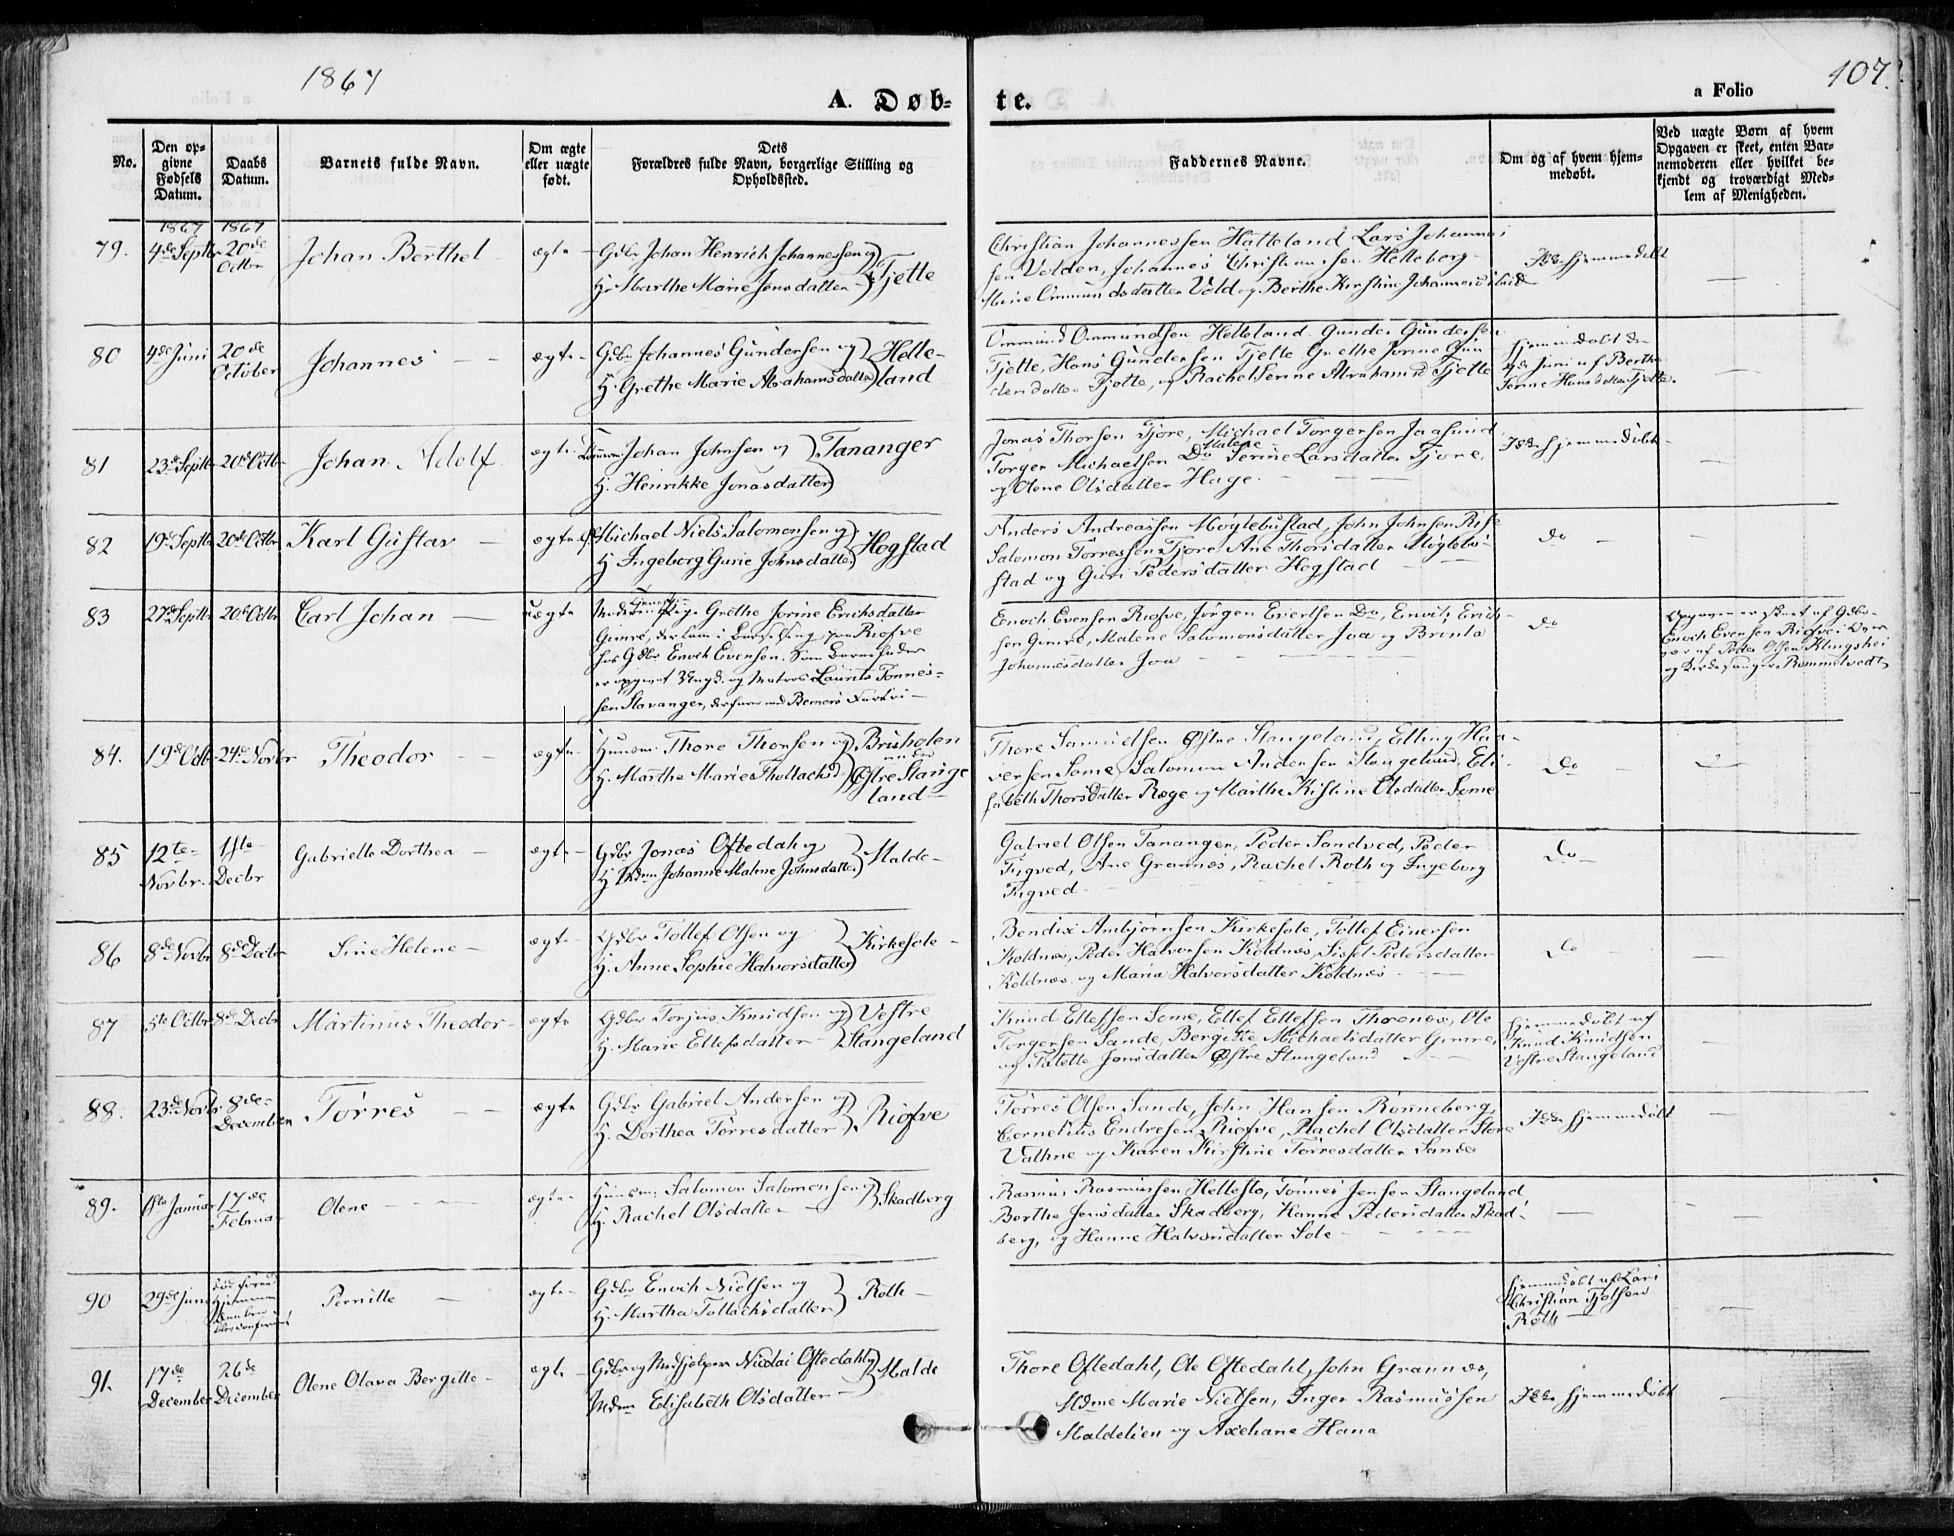 1867
A. Døb-
te.
a Folio
107.
No.
Den op-
givne
Fødsels
Datum.
Daabs
Datum.
Barnets fulde Navn.
Om ægte
eller uægte
født.
Dets
Forældres fulde Navn, borgerlige Stilling og
Opholdssted.
Faddernes Navne.
Om og af hvem hjem-
medøbt.
Ved uægte Børn af hvem
Opgaven er skeet, enten Bar-
nemoderen eller hvilket be-
kjendt og troværdigt Med-
lem af Menigheden.
1867 1867
79. 4de Septbr 20de Octbr Johan Berthel ægte Gdbr Johan Henrich Johannessen og
H. Marthe Marie Jensdatter Tjelte
Christian Johannessen Hatteland Lars Johannes-
sen Volden, Johannes Christiansen Helleborg
Marie Ommundsdatter Vold og Berthe Kirstine Johannesd
Ikke hjemmedøbt
80 4de Juni 20de October Johannes ægte Gdbr Johannes Gundersen og
H. Grethe Marie Abrahamsdatter Helle-
land
Ommund Ommundsen Helleland Gunder Gundersen
Tjelte, Hans Gundersen Tjelte Grethe Jorine Gun
dersdatter Tjelte, og Rachel Serine Abrahamsd Tjelte
hjemmedøbt
Juni af Berthe
Serine Hansdatter Tjelte.
81 23de Septbr 20de Octbr Johan Adolf ægte Johan Johnsen og
H. Henrikke Jonasdatter Tananger
Jonas Thorsen Tjore, Michael Torgersen Jaasund
Torger Michaelsen Do Malene Serine Larsdatter Tjore,
og Olene Olsdatter Hage
Ikke hjemmedøbt
82 19de Septbr 20de Octbr Karl Gustav ægte Michael Niels Salomonsen og
H. Ingeborg Gurie Johnsdatter Hogstad
Anders Andreassen Møglebustad, John Johnsen Risse
Salomon Torressen Tjore, Ane Thorsdatter Møglebu-
stad og Guri Pedersdatter Hogstad
Do
83 27de Septbr 20de Octbr Carl Johan uægte Moder: Pige Grethe Jorine Erichsdatter
Gimre, der laae i Barselseng paa Riofve
hos Gdbr Enoch Evensen. Som Barnefader
er opgivet Ungk. og Matros Laurits Tønnes-
sen Stavanger, der farer med
Enoch Evensen Riofve, Jørgen Evertsen Do, Enoch Erich-
sen Gimre, Malene Salomonsdatter Joa og Brinta
Johannesdatter Joa
Do
Opgaven er skeet af Gdbr
Enoch Evensen Riofve
af Peder Olsen Klingshei
og Kirkesanger Rommetvedt
84. 19de Octbr 24de Novbr Theodor ægte Huusm. Thore Thorsen og
H. Marthe Marie Thollachsd. Bruholen
under
Østre Stange
land
Thore Samuelsen Østre Stangeland, Elling Haa-
versen Sømme, Salomon Andersen Stangeland, Eli-
sabeth Thorsdatter Ræge og Marthe Kistine Olsdatter Sømme
Do
85 12te Novbr. 1ste Decbr Gabrielle Dorthea ægte Gdbr Jonas Oftedal og
H. Mdm Johanne Malene Johnsdatter Malde
Gabriel Olsen Tananger, Peder Sandved, Peder
Tigved, Ane Grannæs, Rachel Roth og Ingeborg
Tigved
Do
86 8de Novbr 8de Decbr Sine Helene ægte Gdbr Tollef Olsen og
H. Anne Sophie Halvorsdatter Kirkesole
Bendix Ambjørnsen Kirkesole, Tollef Einersen
Koldnæs, Peder Halvorsen Koldnæs, Sissel Pedersdatter
Koldnæs og Maria Halvorsdatter Koldnæs
Do
87 5te Octbr 8de Decbr Martinus Theodor ægte Gdbr Torjus Knudsen og
H. Marie Ellefsdatter Vestre
Stangeland
Knud Ellefsen Sømme, Ellef Ellefsen Thornæs, Ole
Torgersen Sande, Bergitte Michaelsdatter Gimre,
og Talette Jonsdatter Østre Stangeland
hjemmedøbt af
Knud Knudsen
Vestre Stangeland
88. 23de Novbr 8de December Tørres ægte Gdbr Gabriel Andersen og
H. Dorthea Tørresdatter Riofve
Tørres Olsen Sande, John Hansen Rønneberg,
Cornelius Endresen Riofve, Rachel Olsdatter Store
Vathne og Karen Kirstine Tørresdatter Sande
Ikke hjemmedøbt
89. 1ste Januar 17de Februar Olene ægte Huusm. Salomon Salomonsen og
H. Rachel Olsdatter Skadberg
Rasmus Rasmussen Hellestø, Tønnes Jensen Stangeland,
Berthe Jensdatter Skadberg, Hanne Pedersdatter Skad-
berg, og Hanne Halvorsdatter Sole
90 29de Juni Pernille ægte Gdbr Enoch Nielsen og
H. Martha Tollachsdatter Roth
hjemmedøbt af Lars
Christian Tjolsen
Roth
91. 17de December 26de December Olene Olava Bergitte ægte Gdbr og Medhjelper Nicolai Oftedahl og
Mdm Elisabeth Olsdatter Malde
Thore Oftedahl, Ole Oftedahl, John Grannæs,
Mdme Marie Nielsen, Inger Rasmussen
Maldelien og Axeliane Hana
Ikke hjemmedøbt